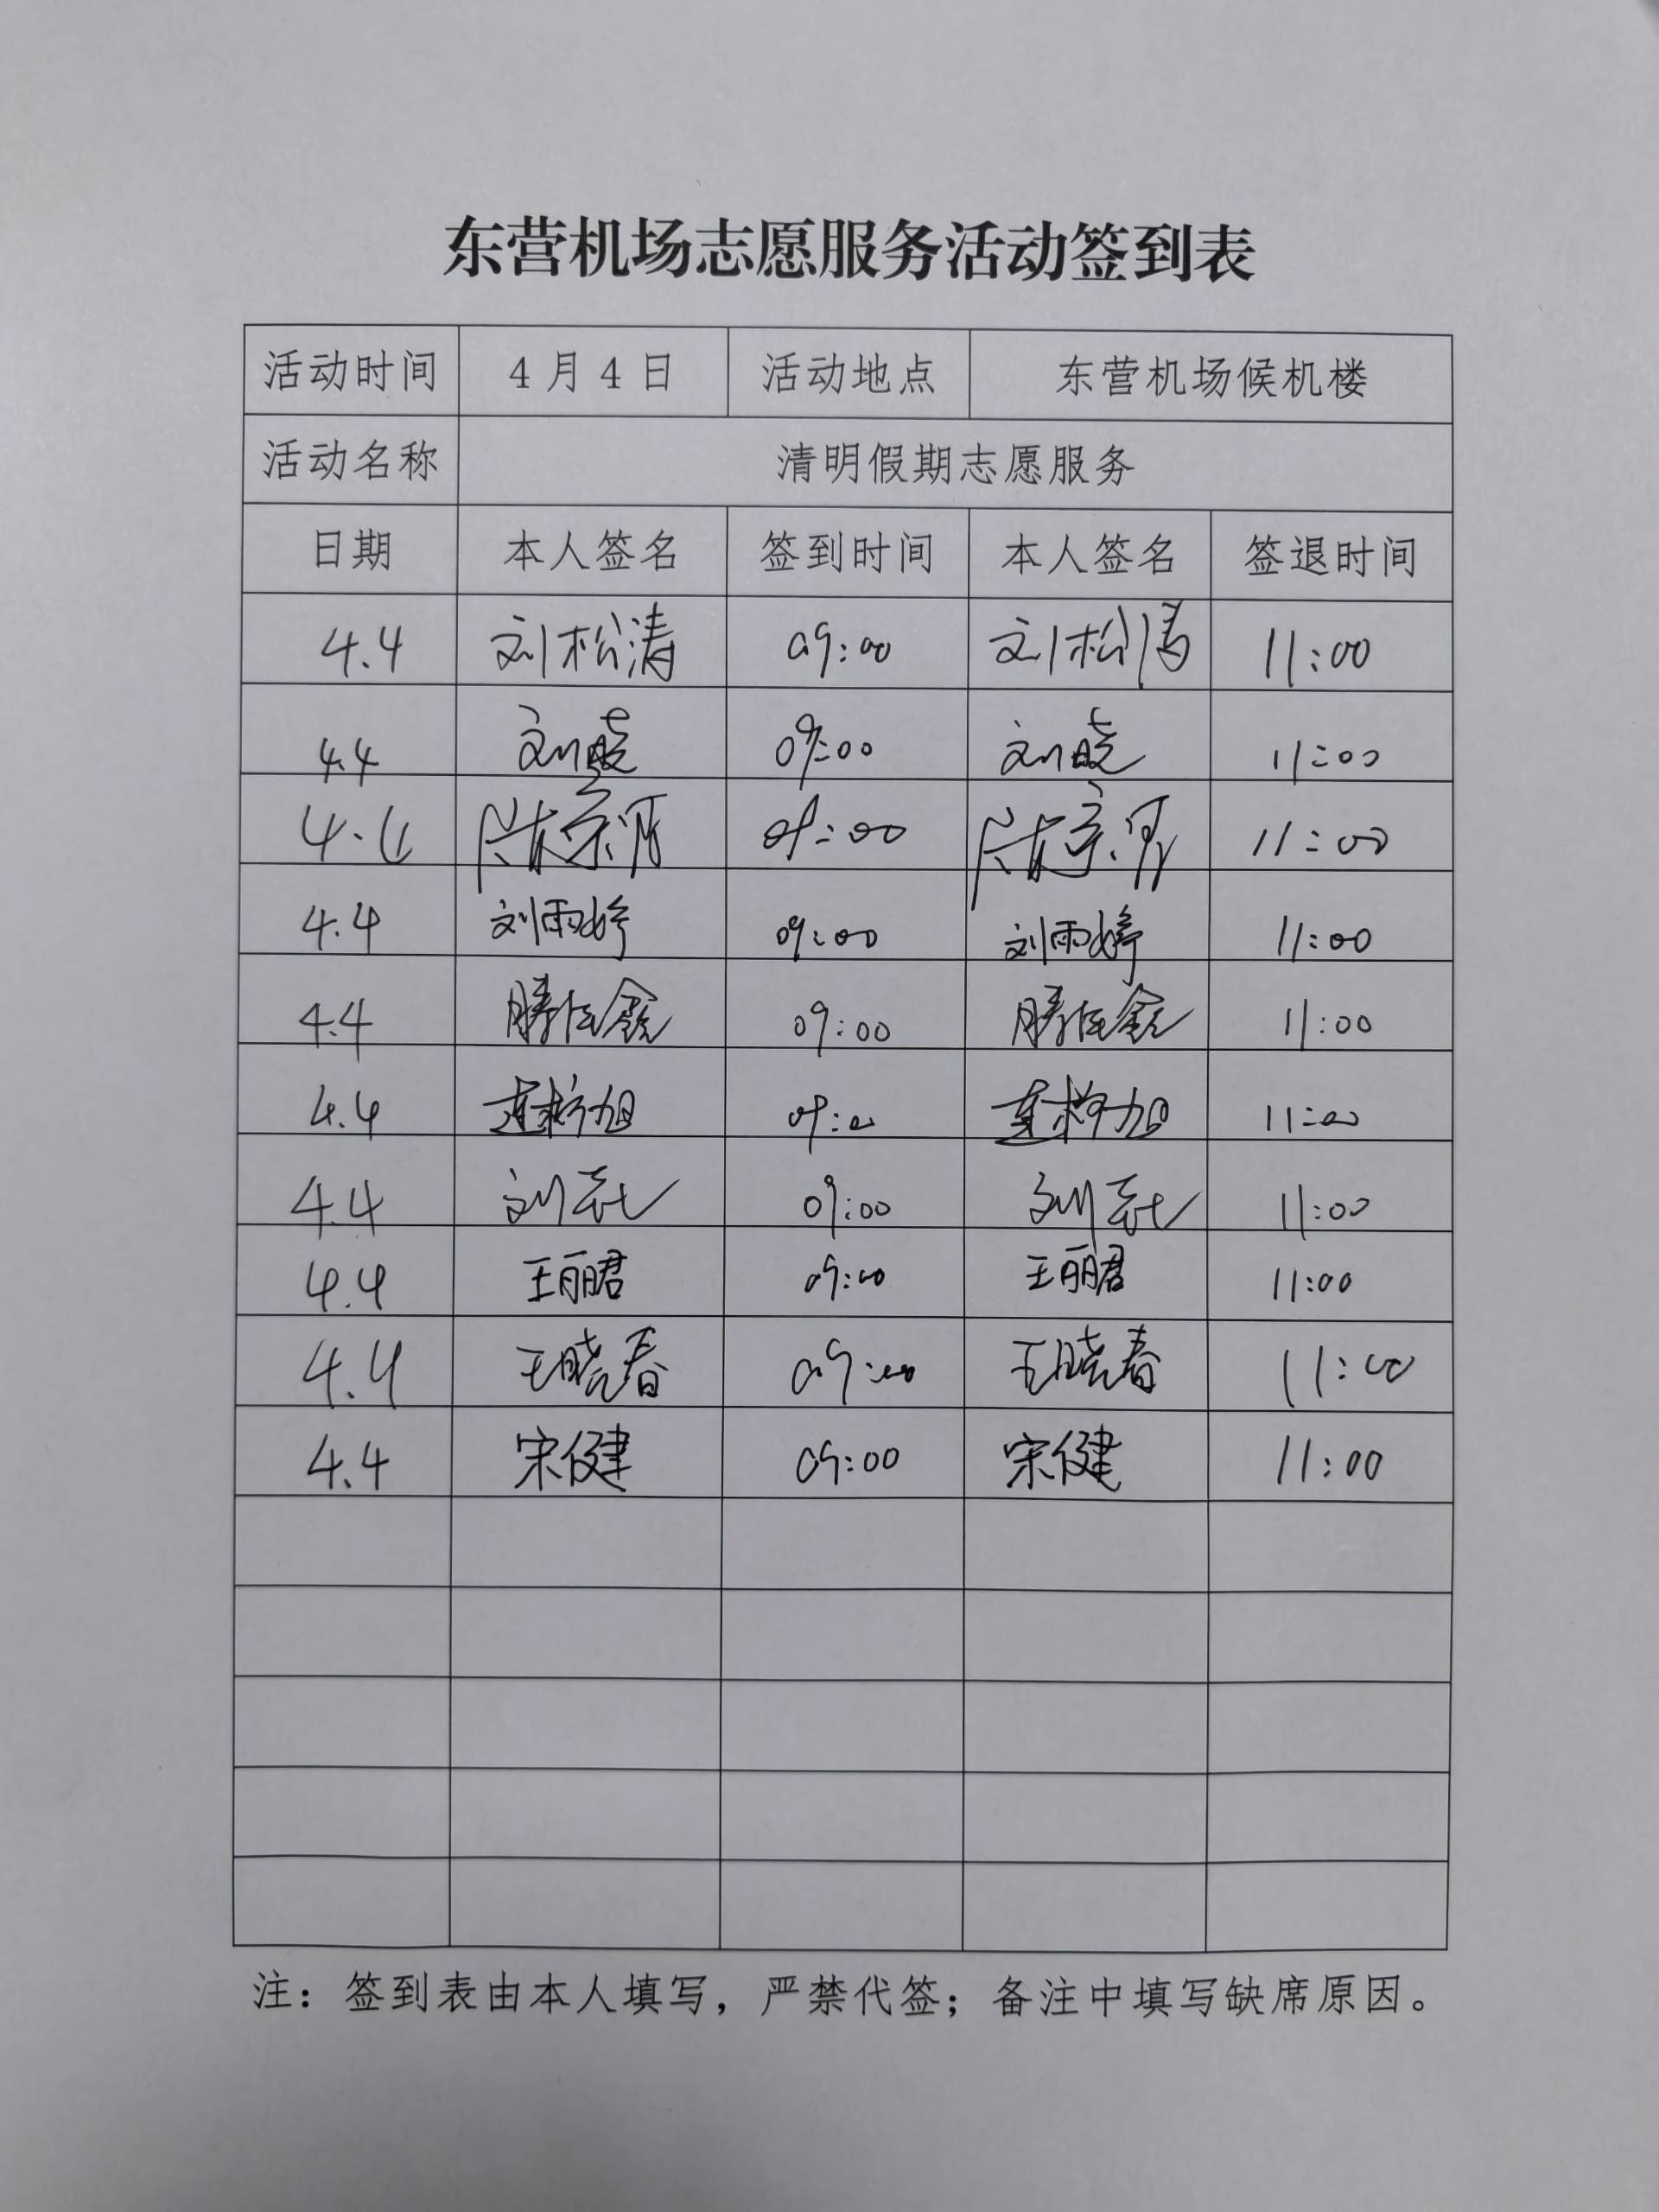 东营机场志愿服务活动签到表
活动时间 4月4日 活动地点 东营机场候机楼
活动名称 清明假期志愿服务
日期 本人签名 签到时间 本人签名 签退时间
4.4 刘松涛 09:00 刘松涛 11:00
4.4 刘晓 09:00 刘晓 11:00
4.4 09:00 11:00
4.4 刘雨婷 09:00 刘雨婷 11:00
4.4 09:00 11:00
4.4 09:00 11:00
4.4 刘 09:00 刘 11:00
4.4 王丽君 09:00 王丽君 11:00
4.4 王晓春 09:00 王晓春 11:00
4.4 宋健 09:00 宋健 11:00
注：签到表由本人填写，严禁代签；备注中填写缺席原因。